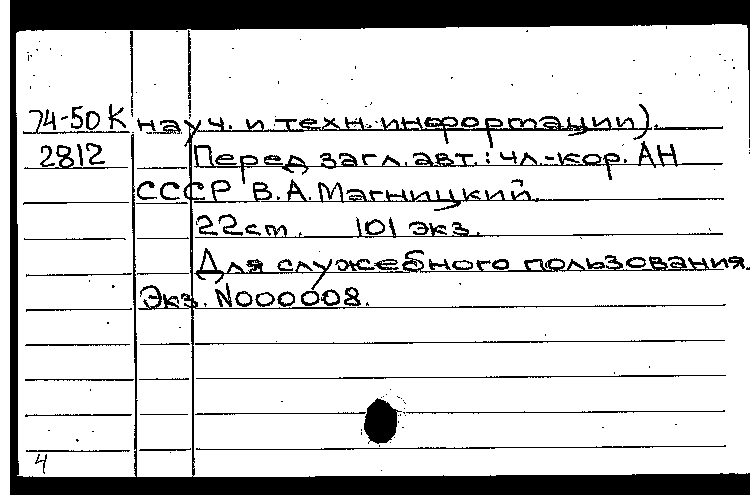 74-50К науч. и техн. информации).
2812 Перед загл. авт.: чл.-кор. АН
СССР В.А. Магницкий.
22 ст. 101 экз.
Для служебного пользования.
Экз. N000008.
4